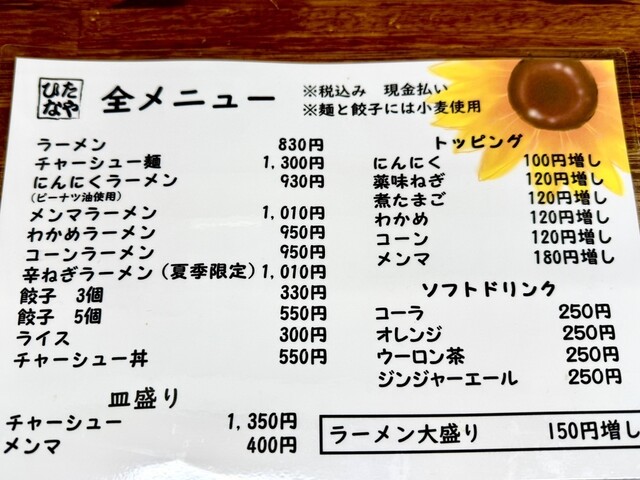 ひなた
たや
全メニュー
※税込み 現金払い
※麺と餃子には小麦使用
ラーメン 830円
チャーシュー麺 1,300円
にんにくラーメン 930円
(ピーナツ油使用)
メンマラーメン 1,010円
わかめラーメン 950円
コーンラーメン 950円
辛ねぎラーメン(夏季限定) 1,010円
餃子 3個 330円
餃子 5個 550円
ライス 300円
チャーシュー丼 550円
皿盛り
チャーシュー 1,350円
メンマ 400円
トッピング
にんにく 100円増し
薬味ねぎ 120円増し
煮たまご 120円増し
わかめ 120円増し
コーン 120円増し
メンマ 180円増し
ソフトドリンク
コーラ 250円
オレンジ 250円
ウーロン茶 250円
ジンジャーエール 250円
ラーメン大盛り 150円増し